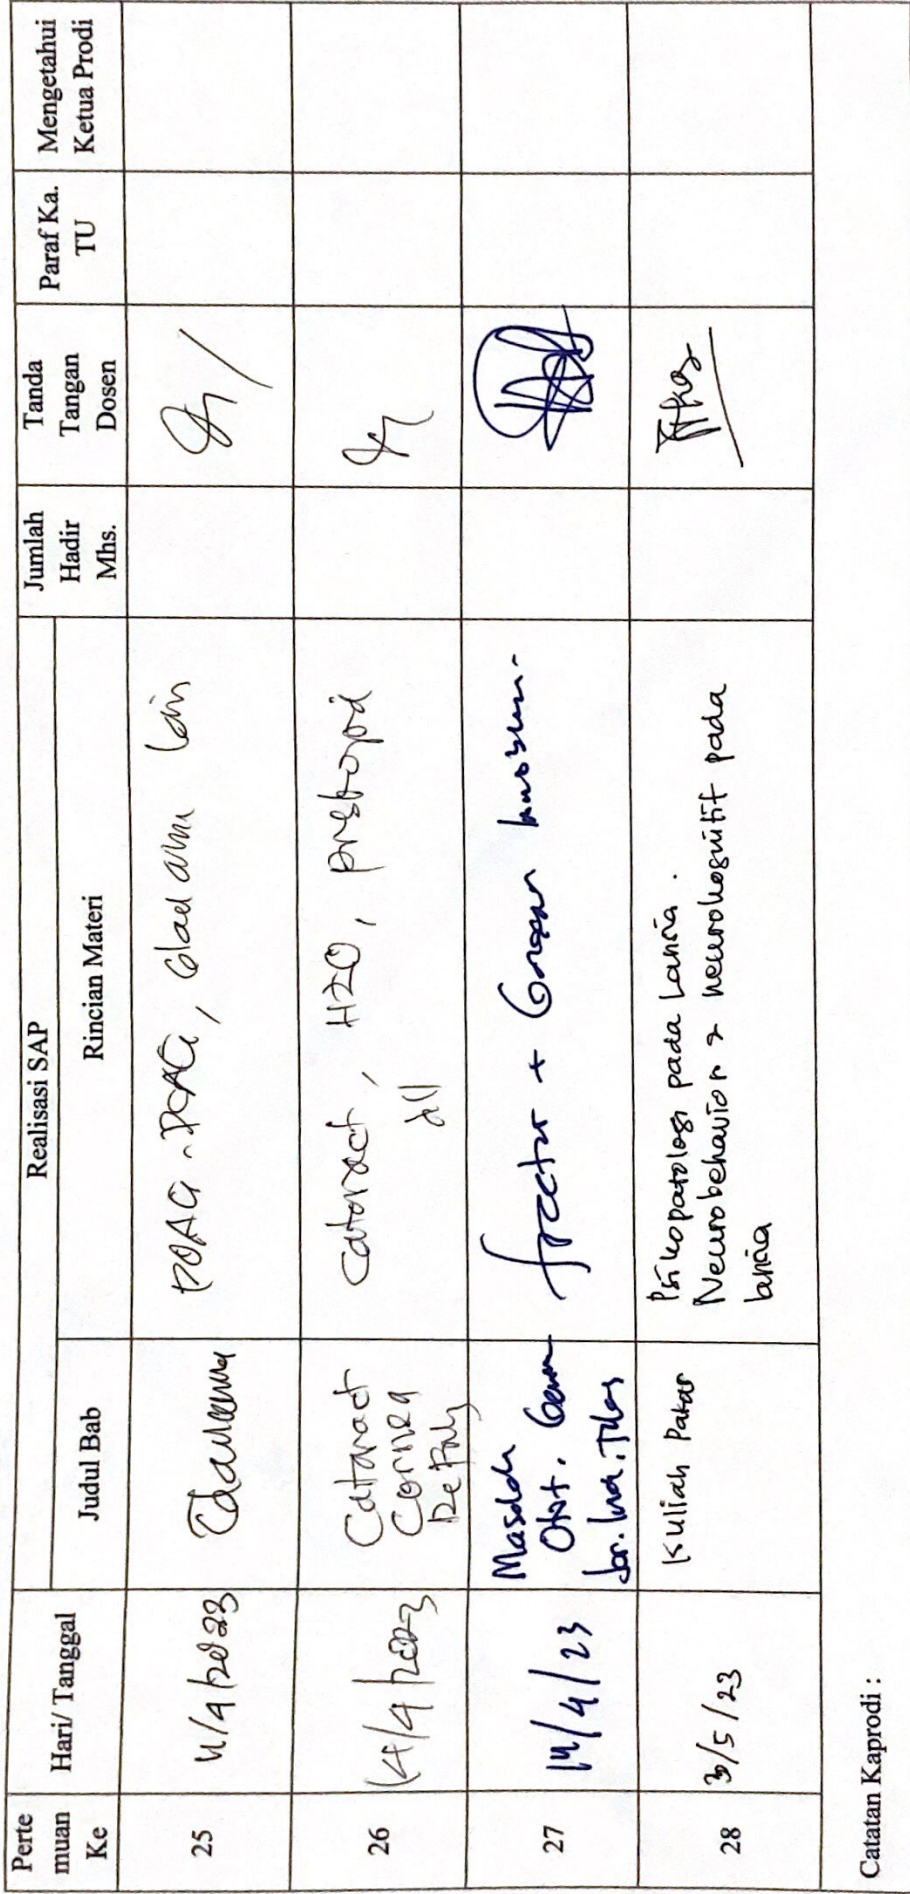 Perte
muan
Ke
Hari/ Tanggal
Realisasi SAP
Judul Bab
Rincian Materi
Jumlah
Hadir
Mhs.
Tanda
Tangan
Dosen
Paraf Ka.
TU
Mengetahui
Ketua Prodi
25
POAG - PCAG, Glaucoma lain
26
14/4/2023
Cataract
Cornea
cataract, H2O, presbiopia
dll
27
14/4/23
Masalah
28
3/5/23
Kuliah Pakar
Psikopatologi pada Lansia.
Neurobehavior & neurokognitif pada
lansia
Catatan Kaprodi :